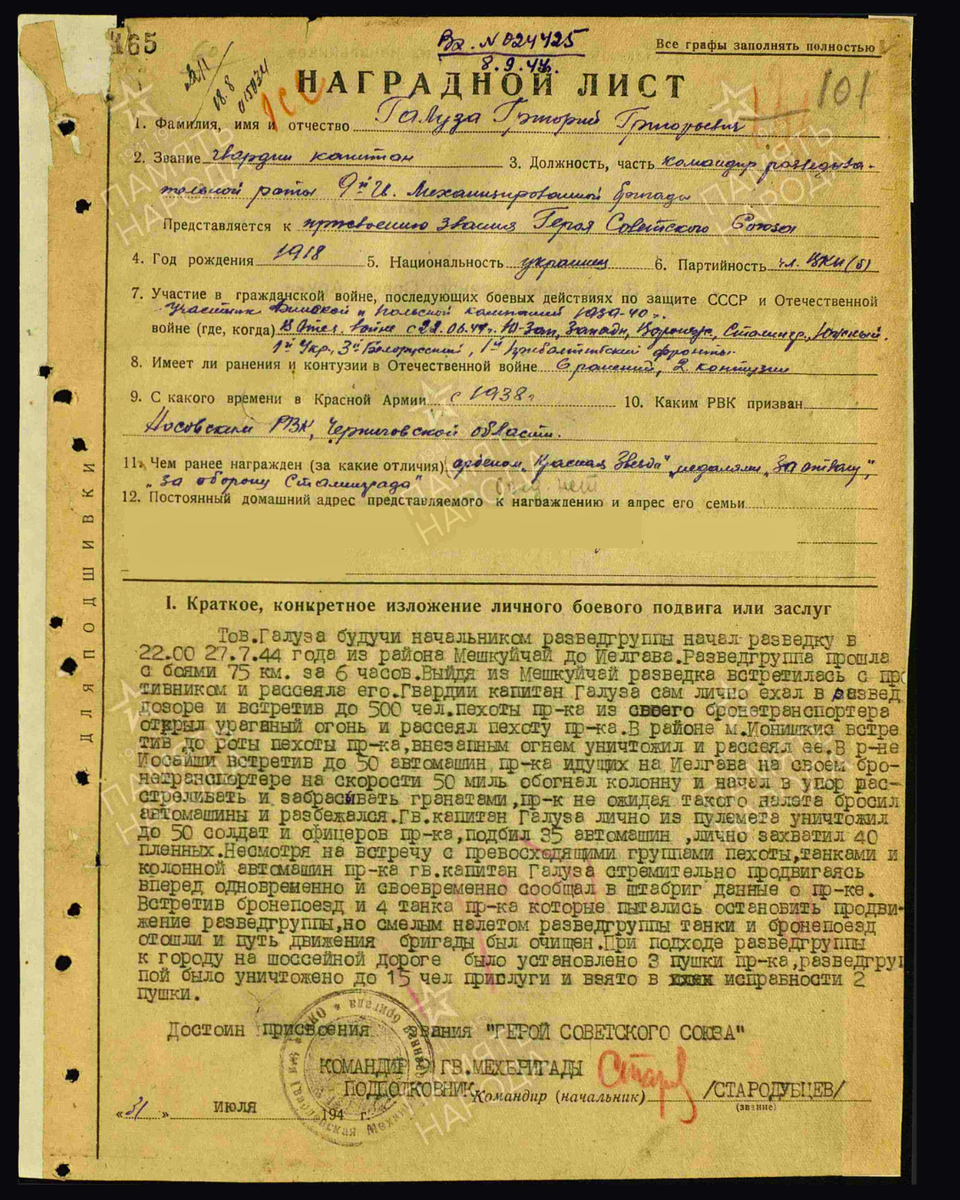 165
Вх. N 024425
8.9.44.
Все графы заполнять полностью
18.8
101
НАГРАДНОЙ ЛИСТ
1. Фамилия, имя и отчество Галуза Григорий Григорьевич
2. Звание гвардии капитан 3. Должность, часть командир разведыва-
тельной роты 9й Гв. Механизированной бригады
Представляется к присвоению звания Героя Советского Союза
4. Год рождения 1918 5. Национальность украинец 6. Партийность чл. ВКП(б)
7. Участие в гражданской войне, последующих боевых действиях по защите СССР и Отечественной
участник Финской и Польской кампаний 1939-40 г.
войне (где, когда) В Отеч. войне с 22.06.41г. Ю-Зап, Западн, Воронеж, Сталингр, Южный.
1й Укр, 3й Белорусский, 1й Прибалтийский фронты.
8. Имеет ли ранения и контузии в Отечественной войне 6 ранений, 2 контузии
9. С какого времени в Красной Армии с 1938г 10. Каким РВК призван
Носовским РВК, Черниговской области.
11. Чем ранее награжден (за какие отличия) орденом „Красная Звезда" медалями „За отвагу",
„За оборону Сталинграда"
12. Постоянный домашний адрес представляемого к награждению и адрес его семьи
ДЛЯ ПОДШИВКИ
I. Краткое, конкретное изложение личного боевого подвига или заслуг
Тов.Галуза будучи начальником разведгруппы начал разведку в
22.00 27.7.44 года из района Мешкуйчай до Иелгава.Разведгруппа прошла
с боями 75 км. за 6 часов.Выйдя из Мешкуйчай разведка встретилась с про
тивником и рассеяла его.Гвардии капитан Галуза сам лично ехал в развед
дозоре и встретив до 500 чел.пехоты пр-ка из своего бронетранспортера
открыл ураганый огонь и рассеял пехоту пр-ка.В районе м.Ионишкис встре
тив до роты пехоты пр-ка,внезапным огнем уничтожил и рассеял ее.В р-не
Иосайши встретив до 50 автомашин пр-ка идущих на Иелгава на своем бро-
нетранспортере на скорости 50 миль обогнал колонну и начал в упор рас-
стреливать и забрасывать гранатами,пр-к не ожидая такого налета бросил
автомашины и разбежался.Гв.капитан Галуза лично из пулемета уничтожил
до 50 солдат и офицеров пр-ка,подбил 35 автомашин ,лично захватил 40
пленных.Несмотря на встречу с превосходящими группами пехоты,танками и
колонной автомашин пр-ка гв.капитан Галуза стремительно продвигаясь
вперед одновременно и своевременно сообщал в штабриг данные о пр-ке.
Встретив бронепоезд и 4 танка пр-ка которые пытались остановить продви-
жение разведгруппы,но смелым налетом разведгруппы танки и бронепоезд
отошли и путь движения бригады был очищен.При подходе разведгруппы
к городу на шоссейной дороге было установлено 3 пушки пр-ка,разведгруп
пой было уничтожено до 15 чел прислуги и взято в исправности 2
пушки.
Достоин присвоения звания "ГЕРОЙ СОВЕТСКОГО СОЮЗА"
КОМАНДИР 9 ГВ.МЕХБРИГАДЫ
ПОДПОЛКОВНИК Командир (начальник) /СТАРОДУБЦЕВ/
(звание)
„31" июля 194 г.
ПАМЯТЬ НАРОДА